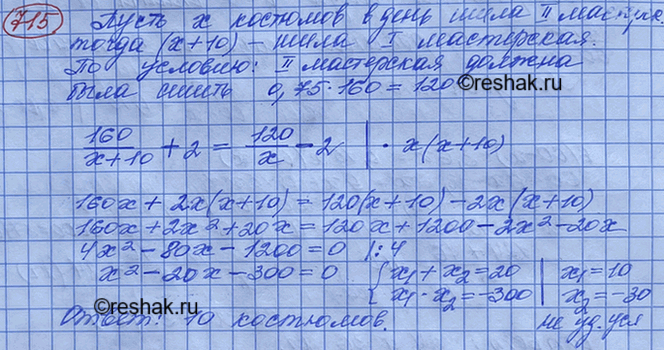 715 Пусть x костюмов в день шила II мастерск.
тогда (x+10) – шила I мастерская.
По условию: II мастерская должна
была сшить 0,75·160=120
160/(x+10) + 2 = 120/x – 2 | · x(x+10)
160x + 2x(x+10) = 120(x+10) – 2x(x+10)
160x + 2x² + 20x = 120x + 1200 – 2x² – 20x
4x² – 80x – 1200 = 0 |: 4
x² – 20x – 300 = 0 { x₁ + x₂ = 20 | x₁ = 10
x₁ · x₂ = –300 | x₂ = –30
Ответ: 10 костюмов. не уд. усл
©reshak.ru